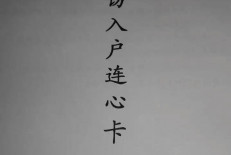 入户连心卡